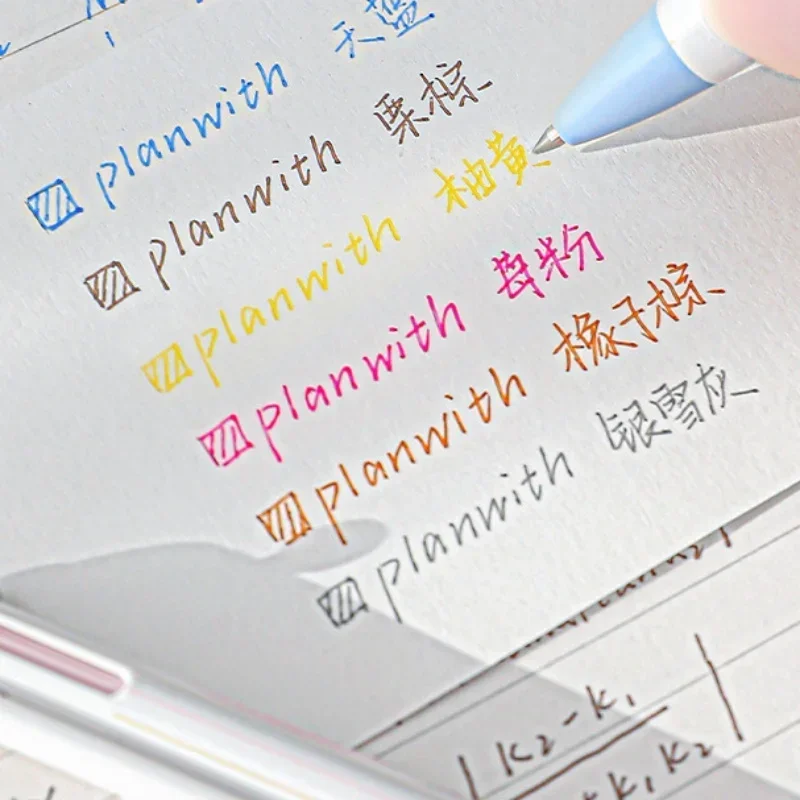 planwith 天蓝
planwith 栗棕
planwith 柚黄
planwith 莓粉
planwith 橡子棕
planwith 银雪灰
k₂-k₁
k₁k₂